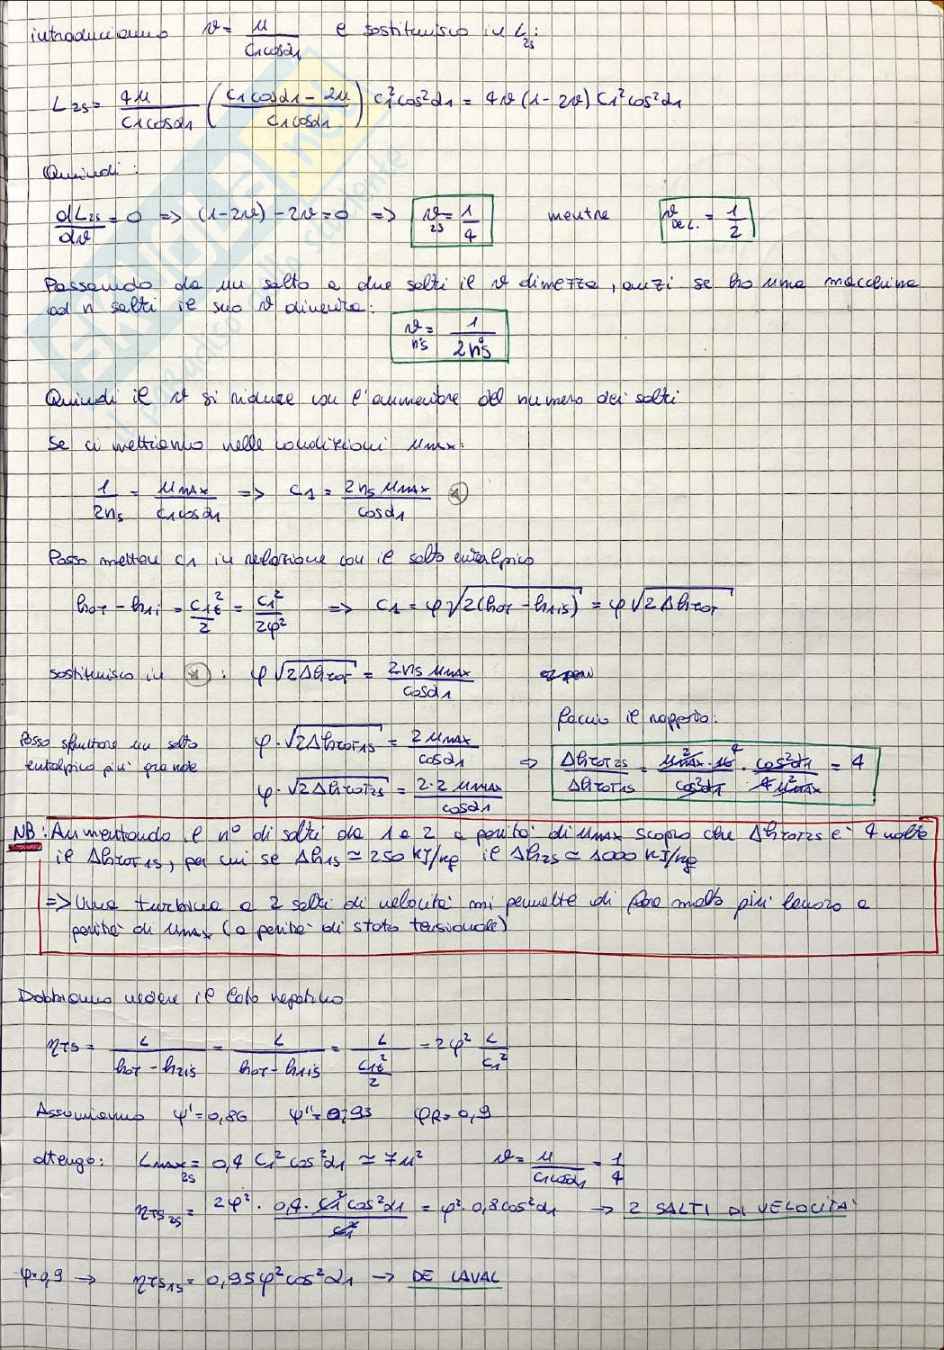 introduciamo ϑ = u / (c₁cosα₁) e sostituisco in L₂ₛ:
L₂ₛ = 4u / (c₁cosα₁) ( (c₁cosα₁ - 2u) / (c₁cosα₁) ) c₁²cos²α₁ = 4ϑ (1-2ϑ) c₁²cos²α₁
Quindi:
dL₂ₛ/dϑ = 0 => (1-2ϑ) - 2ϑ = 0 => ϑ₂ₛ = 1/4 mentre ϑ DE L. = 1/2
Passando da un salto a due salti il ϑ dimezza, anzi se ho una macchina
ad n salti il suo ϑ diventa:
ϑ n°s = 1 / (2n°s)
Quindi il ϑ si riduce con l'aumentare del numero dei salti
Se ci mettiamo nelle condizioni uMAX:
1/(2nₛ) = uMAX / (c₁cosα₁) => c₁ = 2nₛ uMAX / cosα₁ *
Posso mettere c₁ in relazione con il salto entalpico
h₀T - h₁i = c₁t²/2 = c₁²/(2φ²) => c₁ = φ√(2(h₀T - h₁is)) = φ√(2ΔhTOT)
sostituisco in * : φ√(2ΔhTOT) = 2nₛ uMAX / cosα₁
faccio il rapporto:
Posso sfruttare un salto
entalpico più grande
φ·√(2ΔhTOT₁ₛ) = 2 uMAX / cosα₁
φ·√(2ΔhTOT₂ₛ) = 2·2 uMAX / cosα₁
=> ΔhTOT₂ₛ / ΔhTOT₁ₛ = u²MAX·16 / cos²α₁ · cos²α₁ / 4u²MAX = 4
NB: Aumentando il n° di salti da 1 a 2 a parità di uMAX scopro che ΔhTOT₂ₛ è 4 volte
il ΔhTOT₁ₛ, per cui se Δh₁ₛ ≃ 250 kJ/kg il Δh₂ₛ ≃ 1000 kJ/kg
=> Una turbina a 2 salti di velocità mi permette di fare molto più lavoro a
parità di uMAX (a parità di stato tensionale)
Dobbiamo vedere il lato negativo
ηTS = L / (h₀T - h₂is) = L / (h₀T - h₁is) = L / (c₁t²/2) = 2φ² L/c₁²
Assumiamo ψ' = 0,86 ψ'' = 0,93 φR = 0,9
ottengo: LMAX₂ₛ = 0,4 c₁²cos²α₁ ≃ 7u² ϑ = u / (c₁cosα₁) = 1/4
ηTS₂ₛ = 2φ² · 0,4 · c₁²cos²α₁ / c₁² = φ² · 0,8cos²α₁ → 2 SALTI DI VELOCITA'
φ=0,9 → ηTS₁ₛ = 0,95φ²cos²α₁ → DE LAVAL